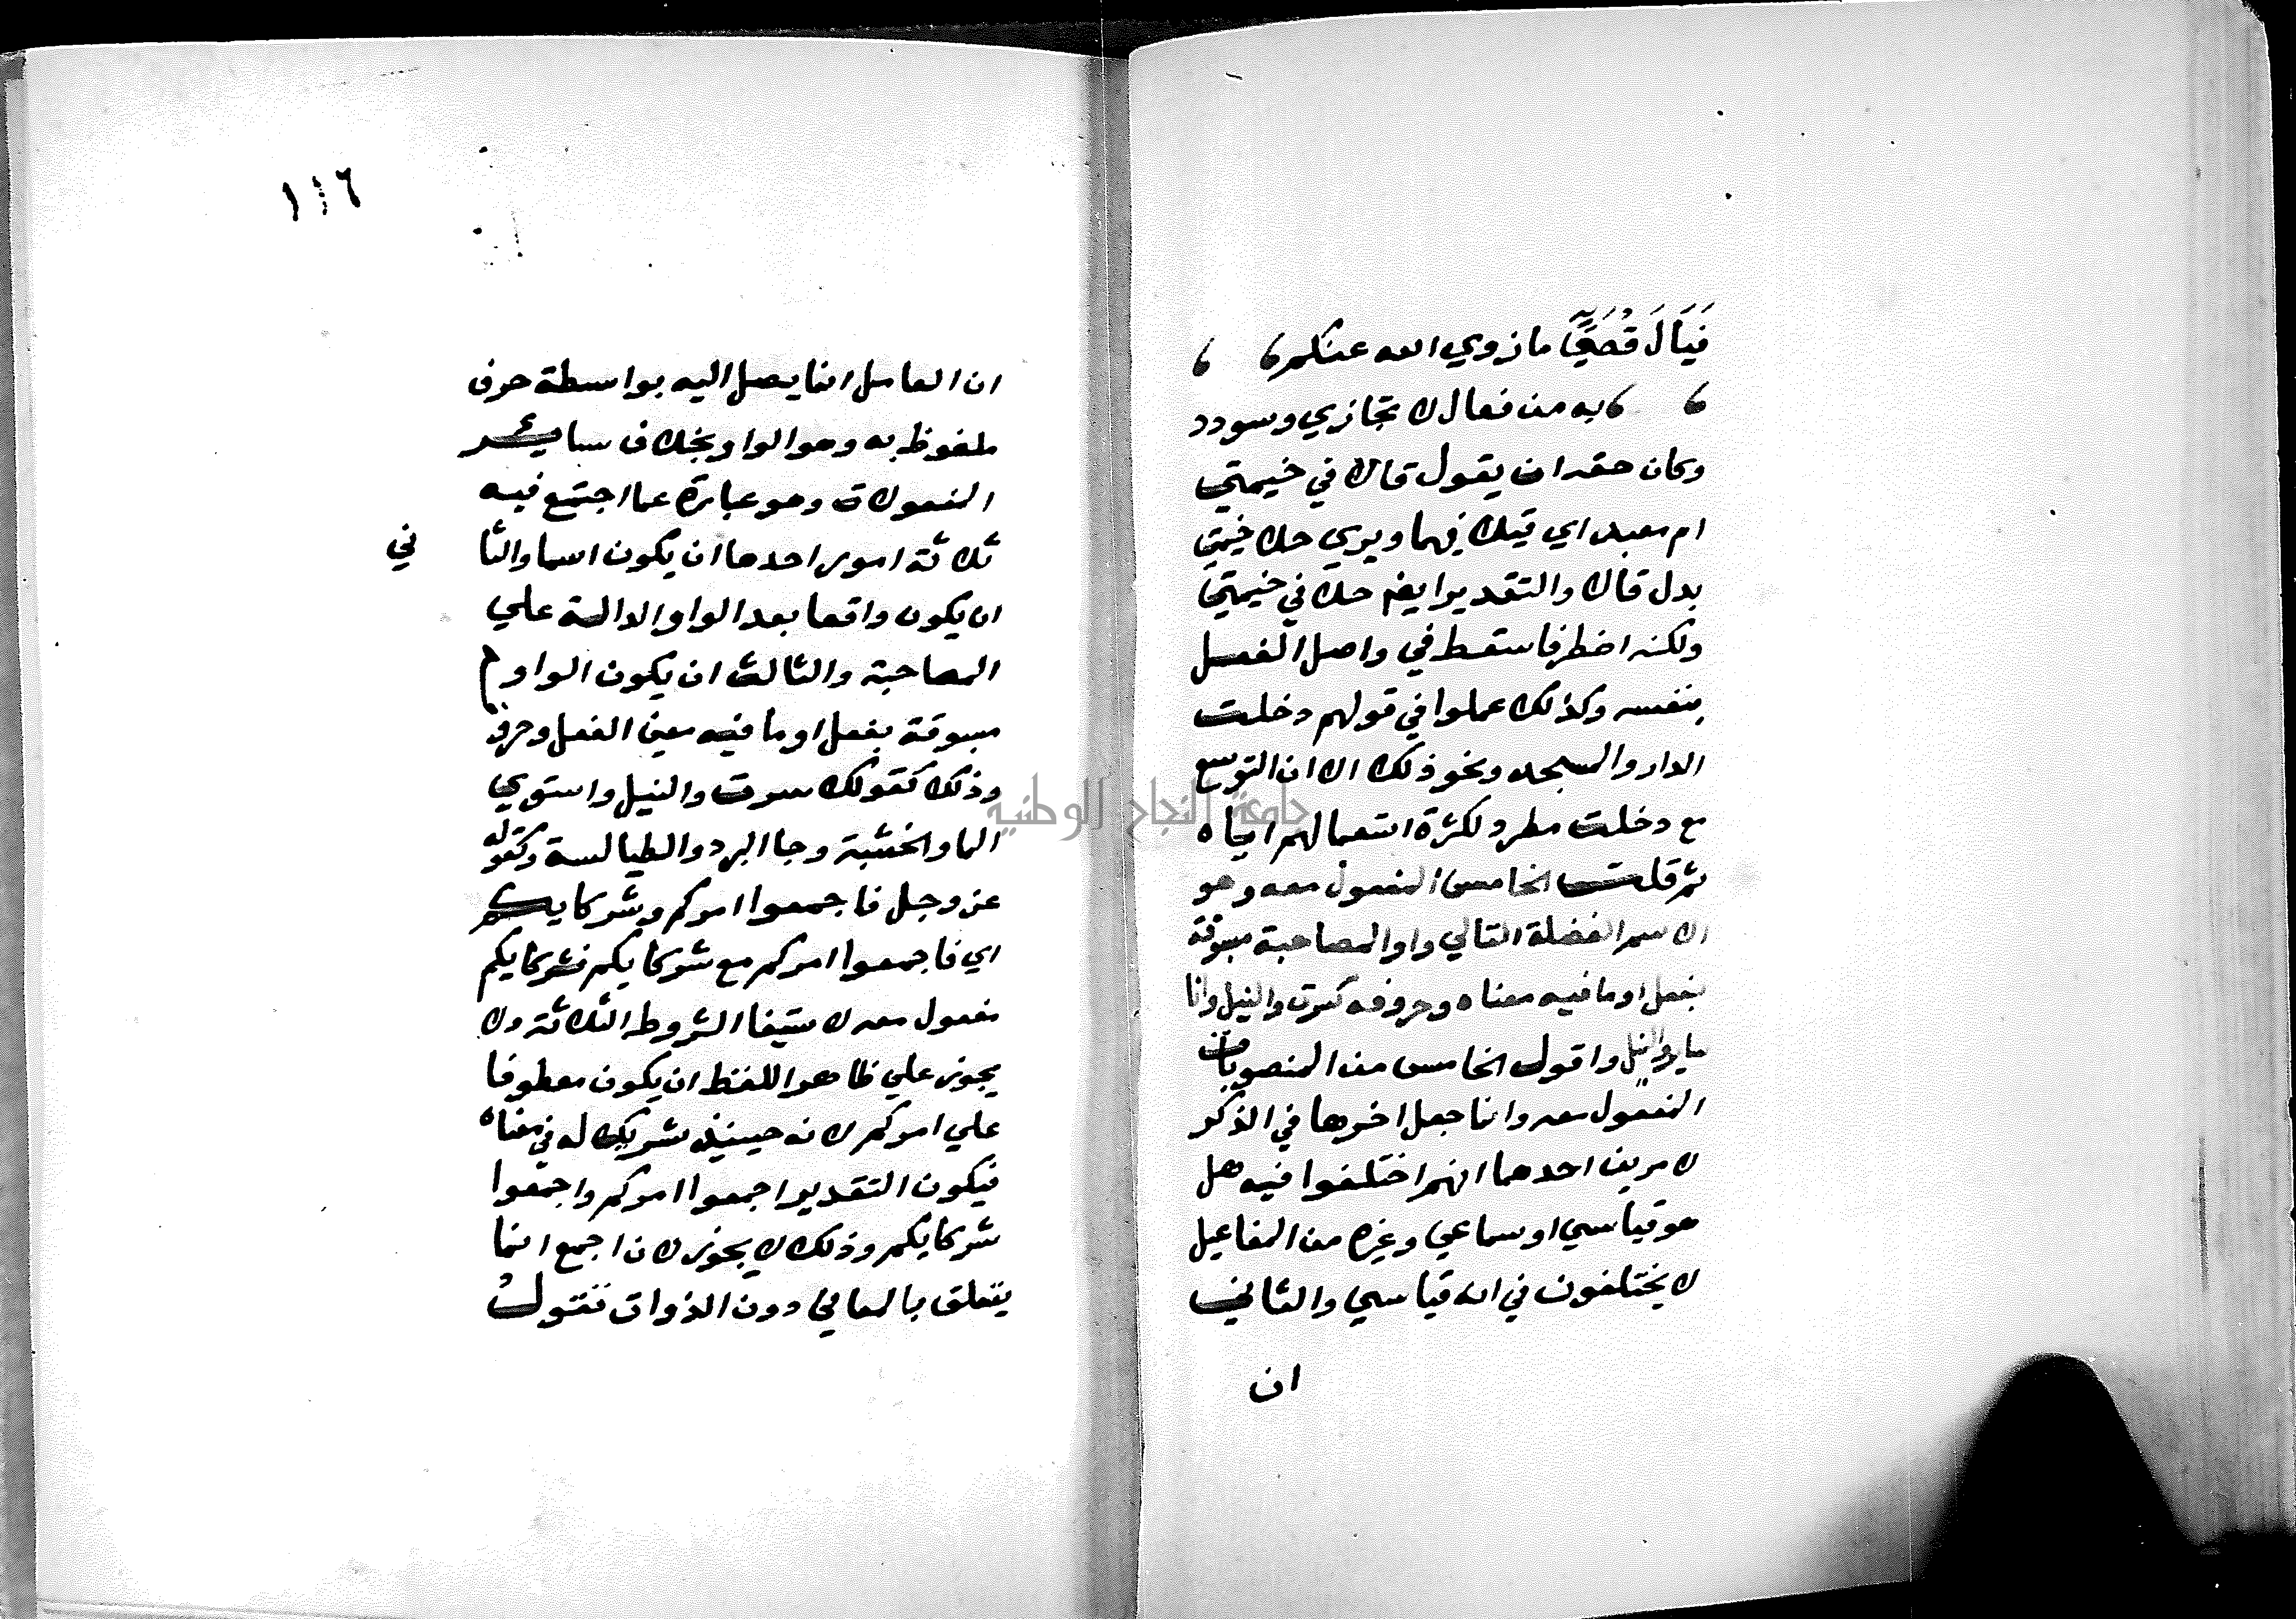 فَيَالَ قُصَيٍّ ما زوي الله عنكم
به من فعال لا تجازي وسودد
وكان حقه ان يقول قالا في خيمتي
ام معبد اي قيلا فيها ويروي حلا خيمتي
بدل قالا والتقدير ايضا حلا في خيمتي
ولكنه اضطر فاسقط في واصل الفعل
بنفسه وكذلك عملوا في قولهم دخلت
الدار والمسجد ونحو ذلك الا ان التوسع
مع دخلت مطرد لكثرة استعمالهم اياه
ثم قلت الخامس المفعول معه وهو
الاسم الفضلة التالي واو المصاحبة مسبوقة
بفعل او ما فيه معناه وحروفه كسرت والنيل وانا
ساير والنيل واقول الخامس من المنصوبات
المفعول معه وانما جعل اخرها في الذكر
لامرين احدهما انهم اختلفوا فيه هل
هو قياسي او سماعي وغيره من المفاعيل
لا يختلفون في انه قياسي والثاني
ان
١١٦
ان العامل انما يصل اليه بواسطة حرف
ملفوظ به وهو الواو بخلاف سائر
المفعولات وهو عبارة عما اجتمع فيه
ثلاثة امور احدها ان يكون اسما والثا ني
ان يكون واقعا بعد الواو الدالة علي
المصاحبة والثالث ان يكون الواو
مسبوقة بفعل او ما فيه معني الفعل وحروفه
وذلك كقولك سرت والنيل واستوي
الما والخشبة وجا البرد والطيالسة وكقوله
عز وجل فاجمعوا امركم وشركايكم
اي فاجمعوا امركم مع شركايكم فشركايكم
مفعول معه لاستيفا الشروط الثلاثة ولا
يجوز علي ظاهر اللفظ ان يكون معطوفا
علي امركم لانه حينيذ شريك له في معناه
فيكون التقدير اجمعوا امركم واجمعوا
شركايكم وذلك لا يجوز لان اجمع انما
يتعلق بالمعاني دون الذوات تقول
جامعة النجاح الوطنية